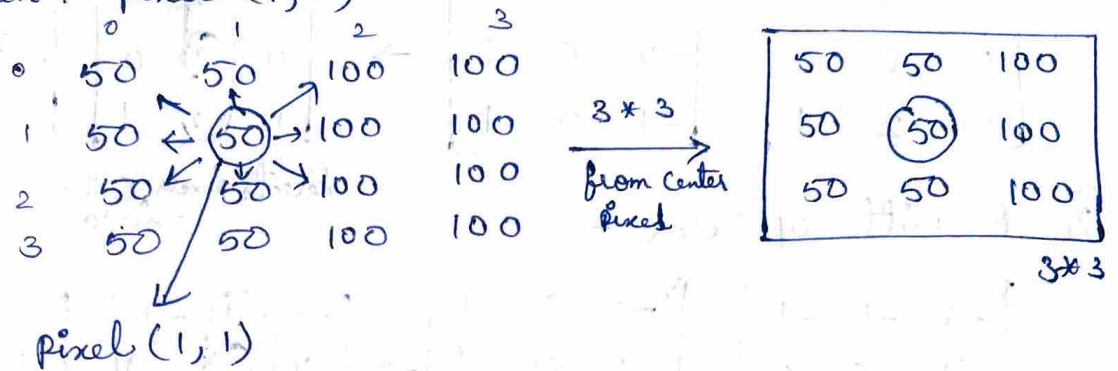 pixel (1, 1)
0 1 2 3
0 50 50 100 100
1 50 50 100 100
2 50 50 100 100
3 50 50 100 100
3 * 3
from center
pixel
50 50 100
50 50 100
50 50 100
3*3
pixel (1, 1)